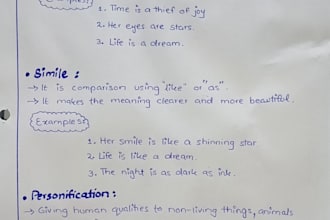 Examples:
1. Time is a thief of joy
2. Her eyes are stars.
3. Life is a dream.
• Simile :
→ It is comparison using "like" or "as".
→ It makes the meaning clearer and more beautiful.
Examples:
1. Her smile is like a shinning star
2. Life is like a dream.
3. The night is as dark as ink.
• Personification :
→ Giving human qualities to non-living things, animals